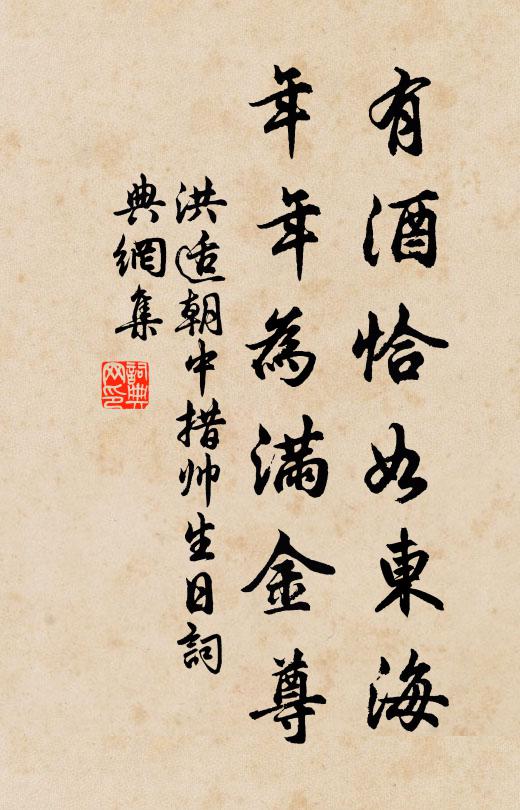 有酒恰如東海
年年為滿金尊
洪适朝中措帅生日詞
典網集
詞典网印